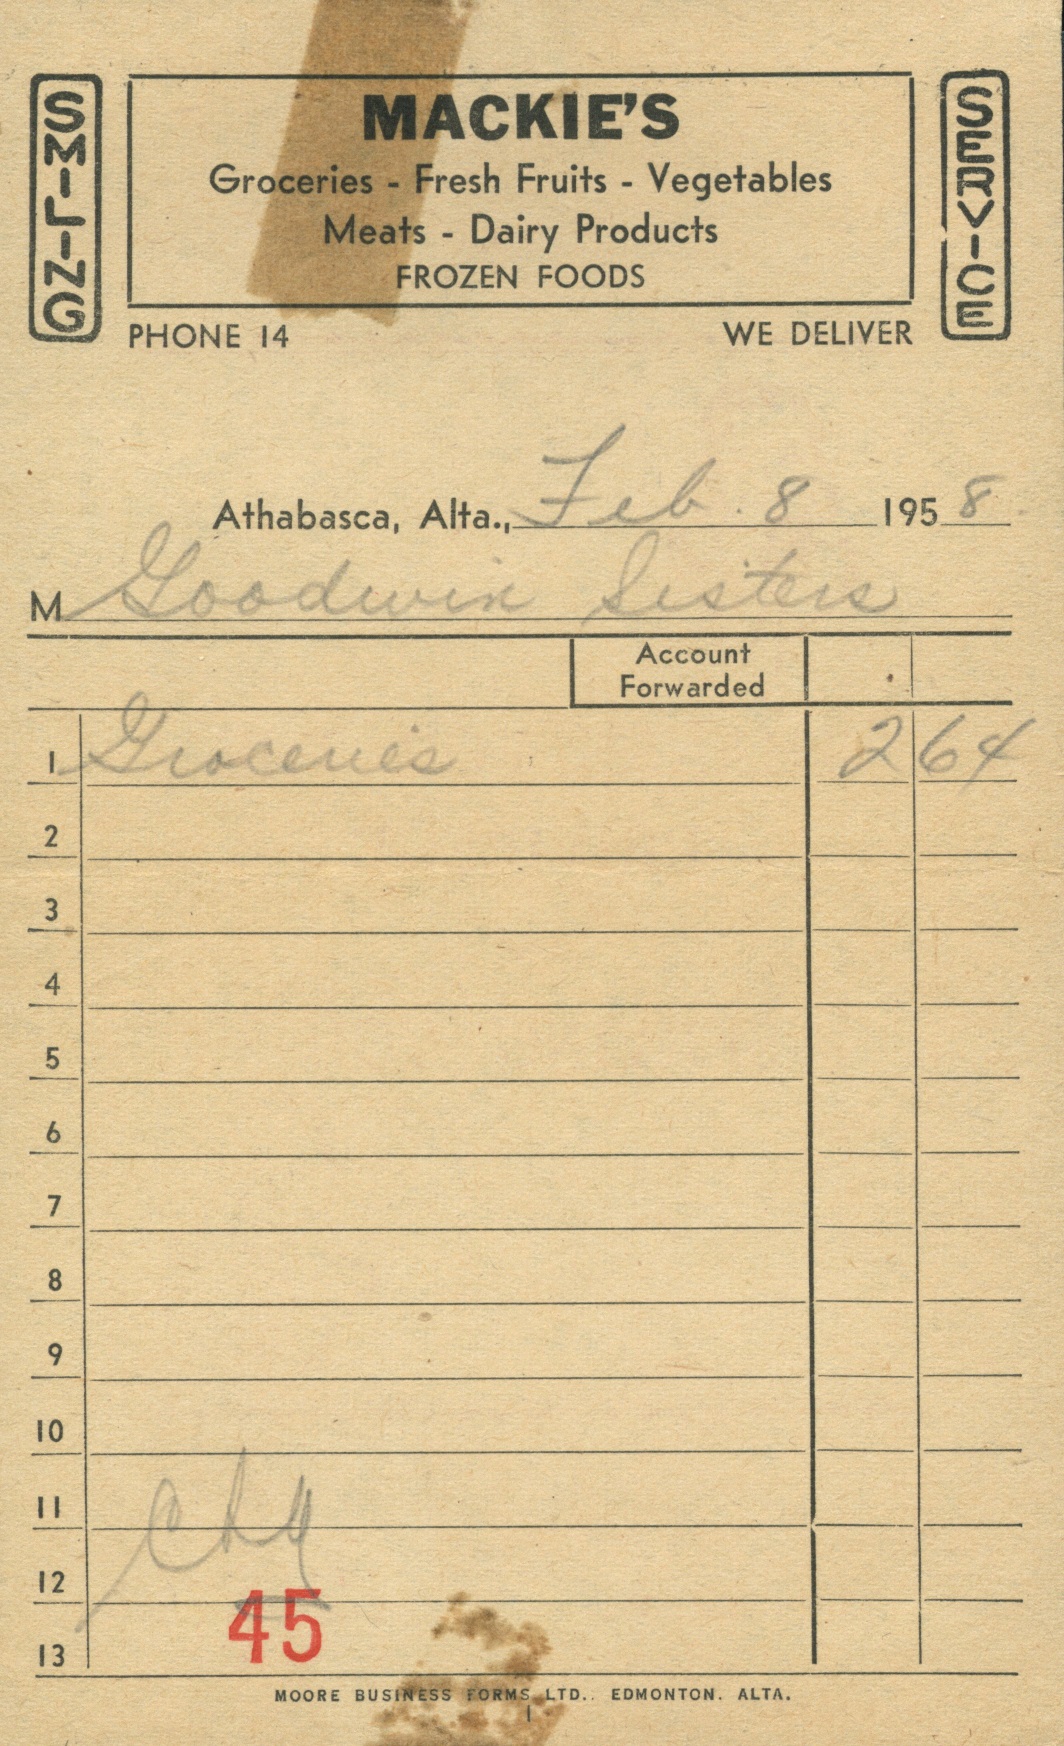 SMILING
MACKIE'S
Groceries - Fresh Fruits - Vegetables
Meats - Dairy Products
FROZEN FOODS
SERVICE
PHONE 14 WE DELIVER
Athabasca, Alta., Feb. 8 1958
M Goodwin Sisters
Account
Forwarded
1 Groceries 2 64
2
3
4
5
6
7
8
9
10
11
12
45
13
MOORE BUSINESS FORMS LTD.. EDMONTON. ALTA.
1